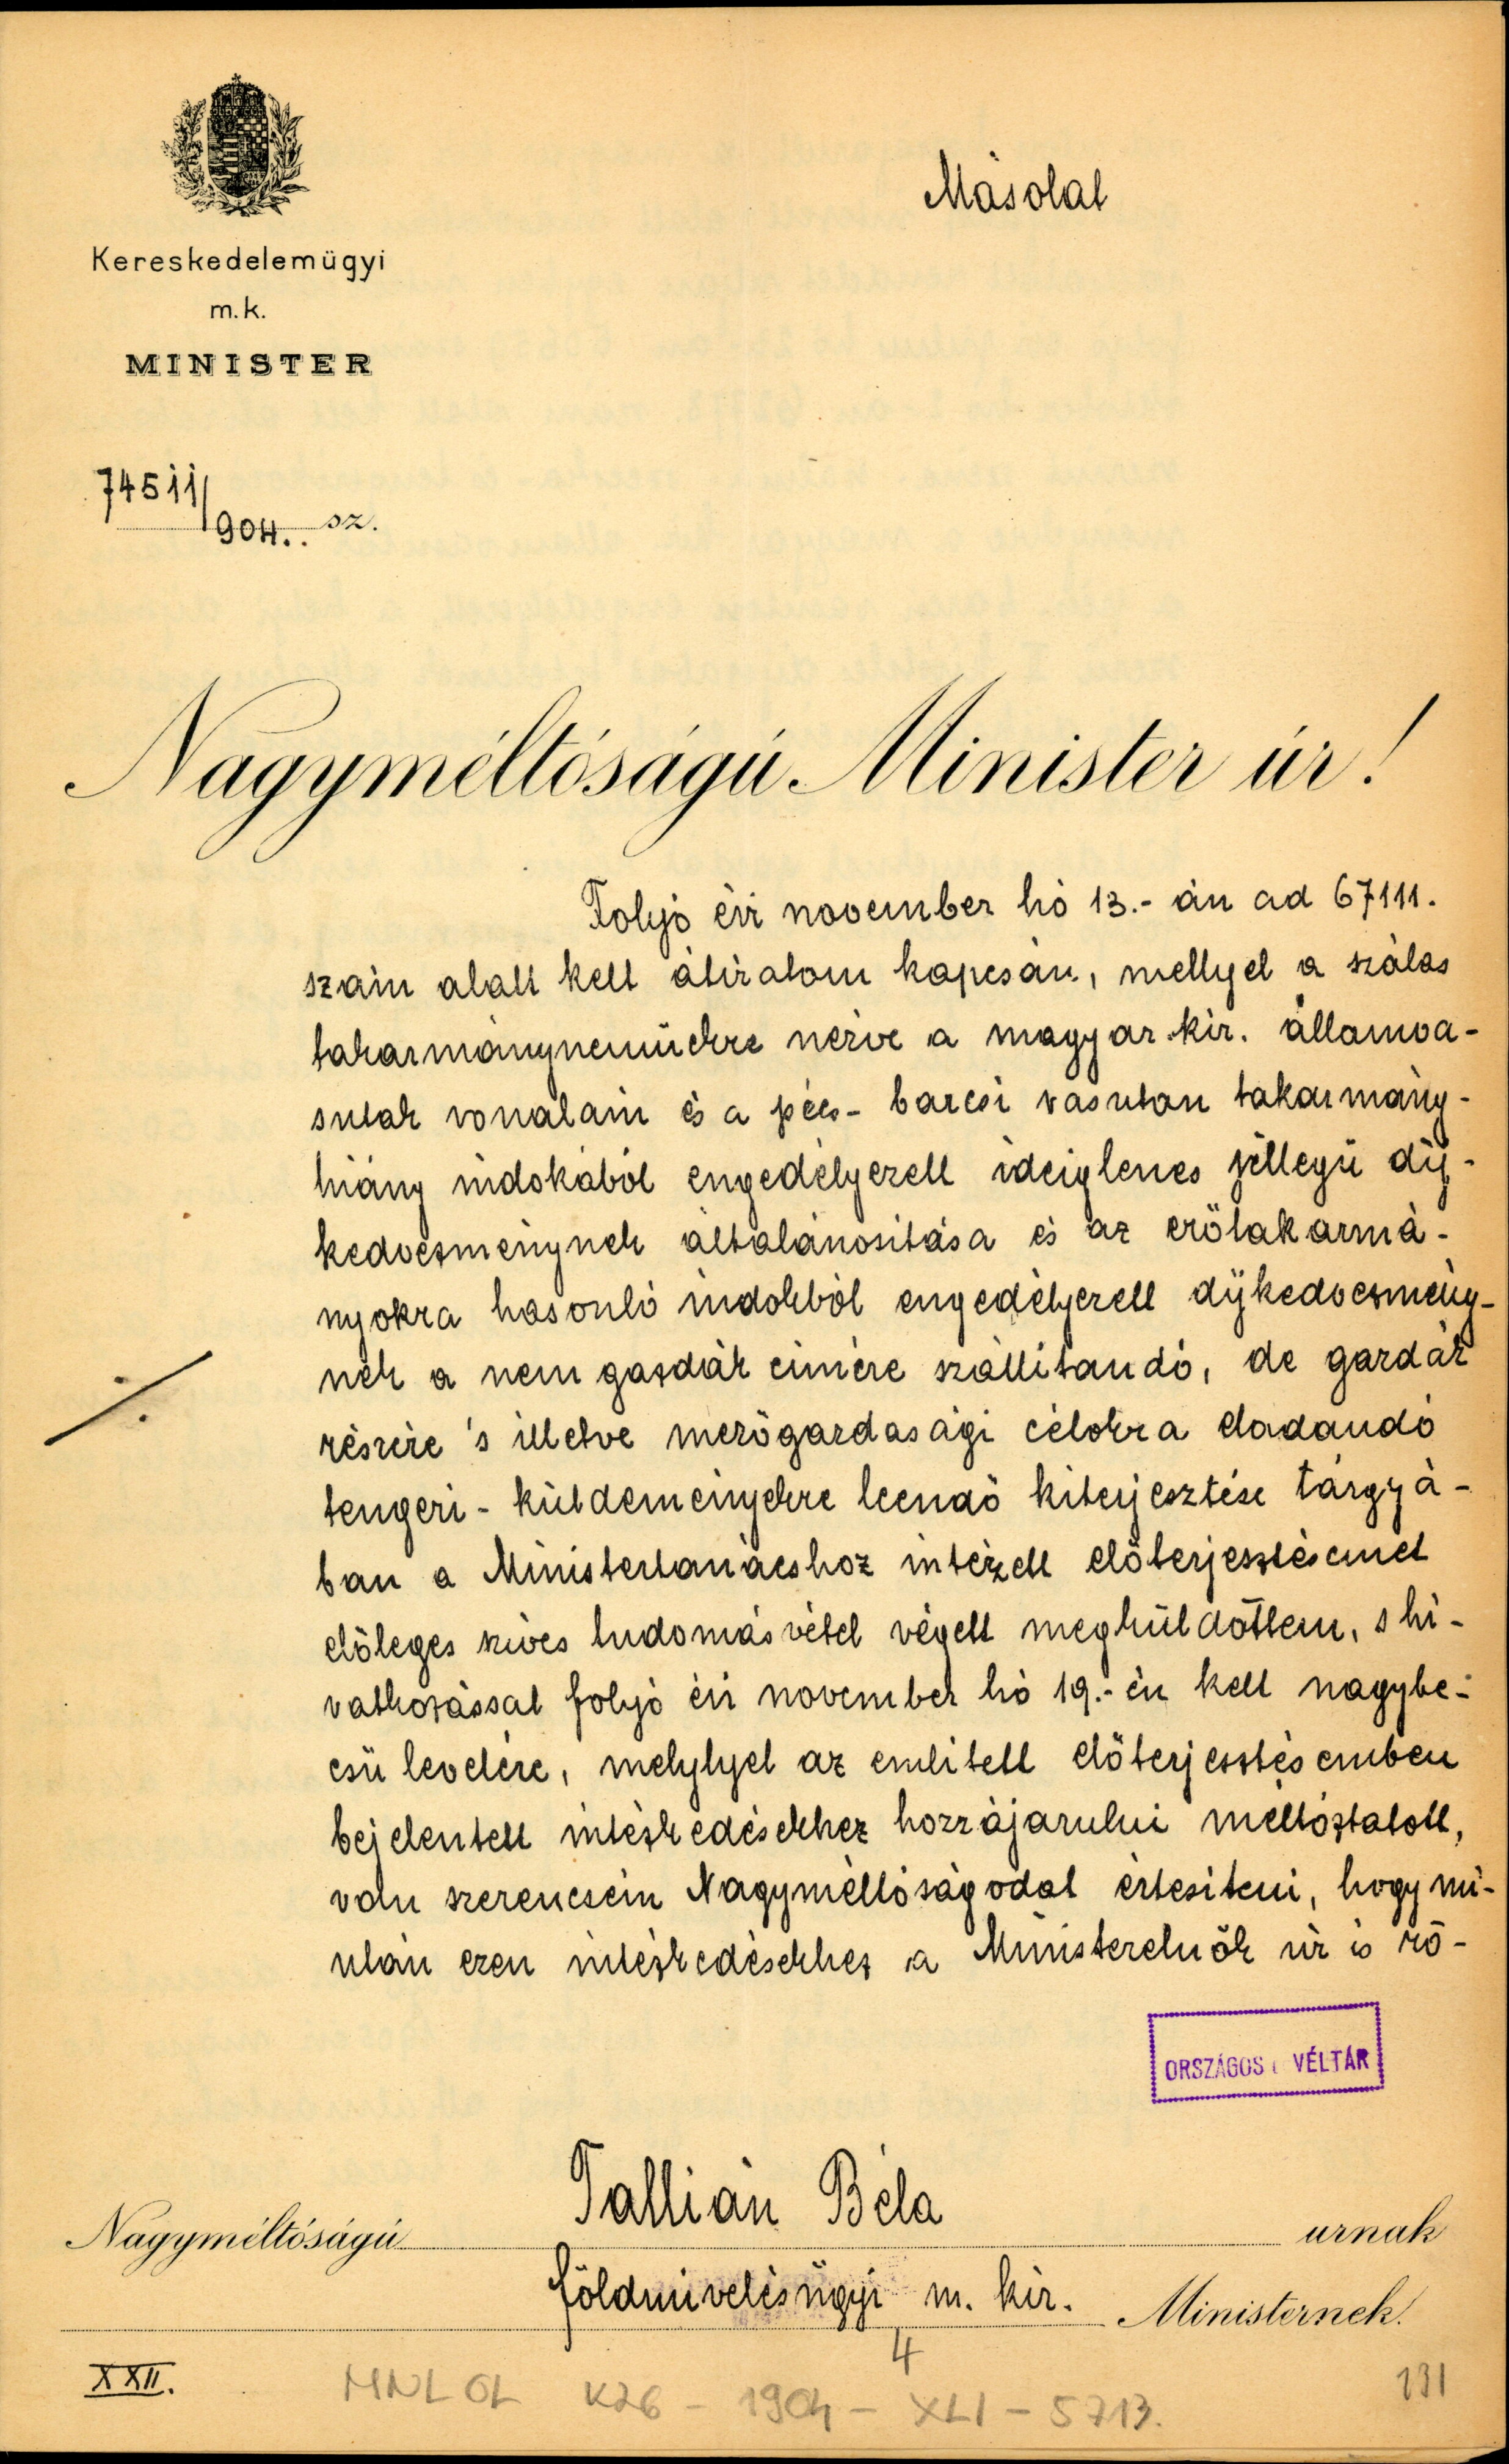 Másolat
Kereskedelemügyi
m.k.
MINISTER
74511/904. sz.
Nagyméltóságú Minister úr!
Folyó évi november hó 13.-án ad 67111.
szám alatt kelt átiratom kapcsán, mellyel a szálas
takarmányneműekre nézve a magyar kir. államva-
sutak vonalain és a pécs-barcsi vasuton takarmány-
hiány indokából engedélyezett ideiglenes jellegü díj-
kedvezménynek általánosítása és az erőtakarmá-
nyokra hasonló indokból engedélyezett díjkedvezmény-
nek a nem gazdák címére szállítandó, de gazdák
részére 's illetve mezőgazdasági célokra eladandó
tengeri-küldeményekre leendő kiterjesztése tárgyá-
ban a Ministertanácshoz intézett előterjesztésemet
előleges szíves tudomásvétel végett megküldöttem, s hi-
vatkozással folyó évi november hó 19.-én kelt nagybe-
csü levelére, melylyel az említett előterjesztésemben
bejelentett intézkedésekhez hozzájárulni méltóztatott,
van szerencsém Nagyméltóságodat értesíteni, hogy mi-
után ezen intézkedésekhez a Ministerelnök úr is hó-
ORSZÁGOS VÉLTÁR
Nagyméltóságú Tallián Béla urnak
földmivelésügyi m. kir. Ministernek.
4
XXII.
MNL OL K26 - 1904 - XLI - 5713.
131